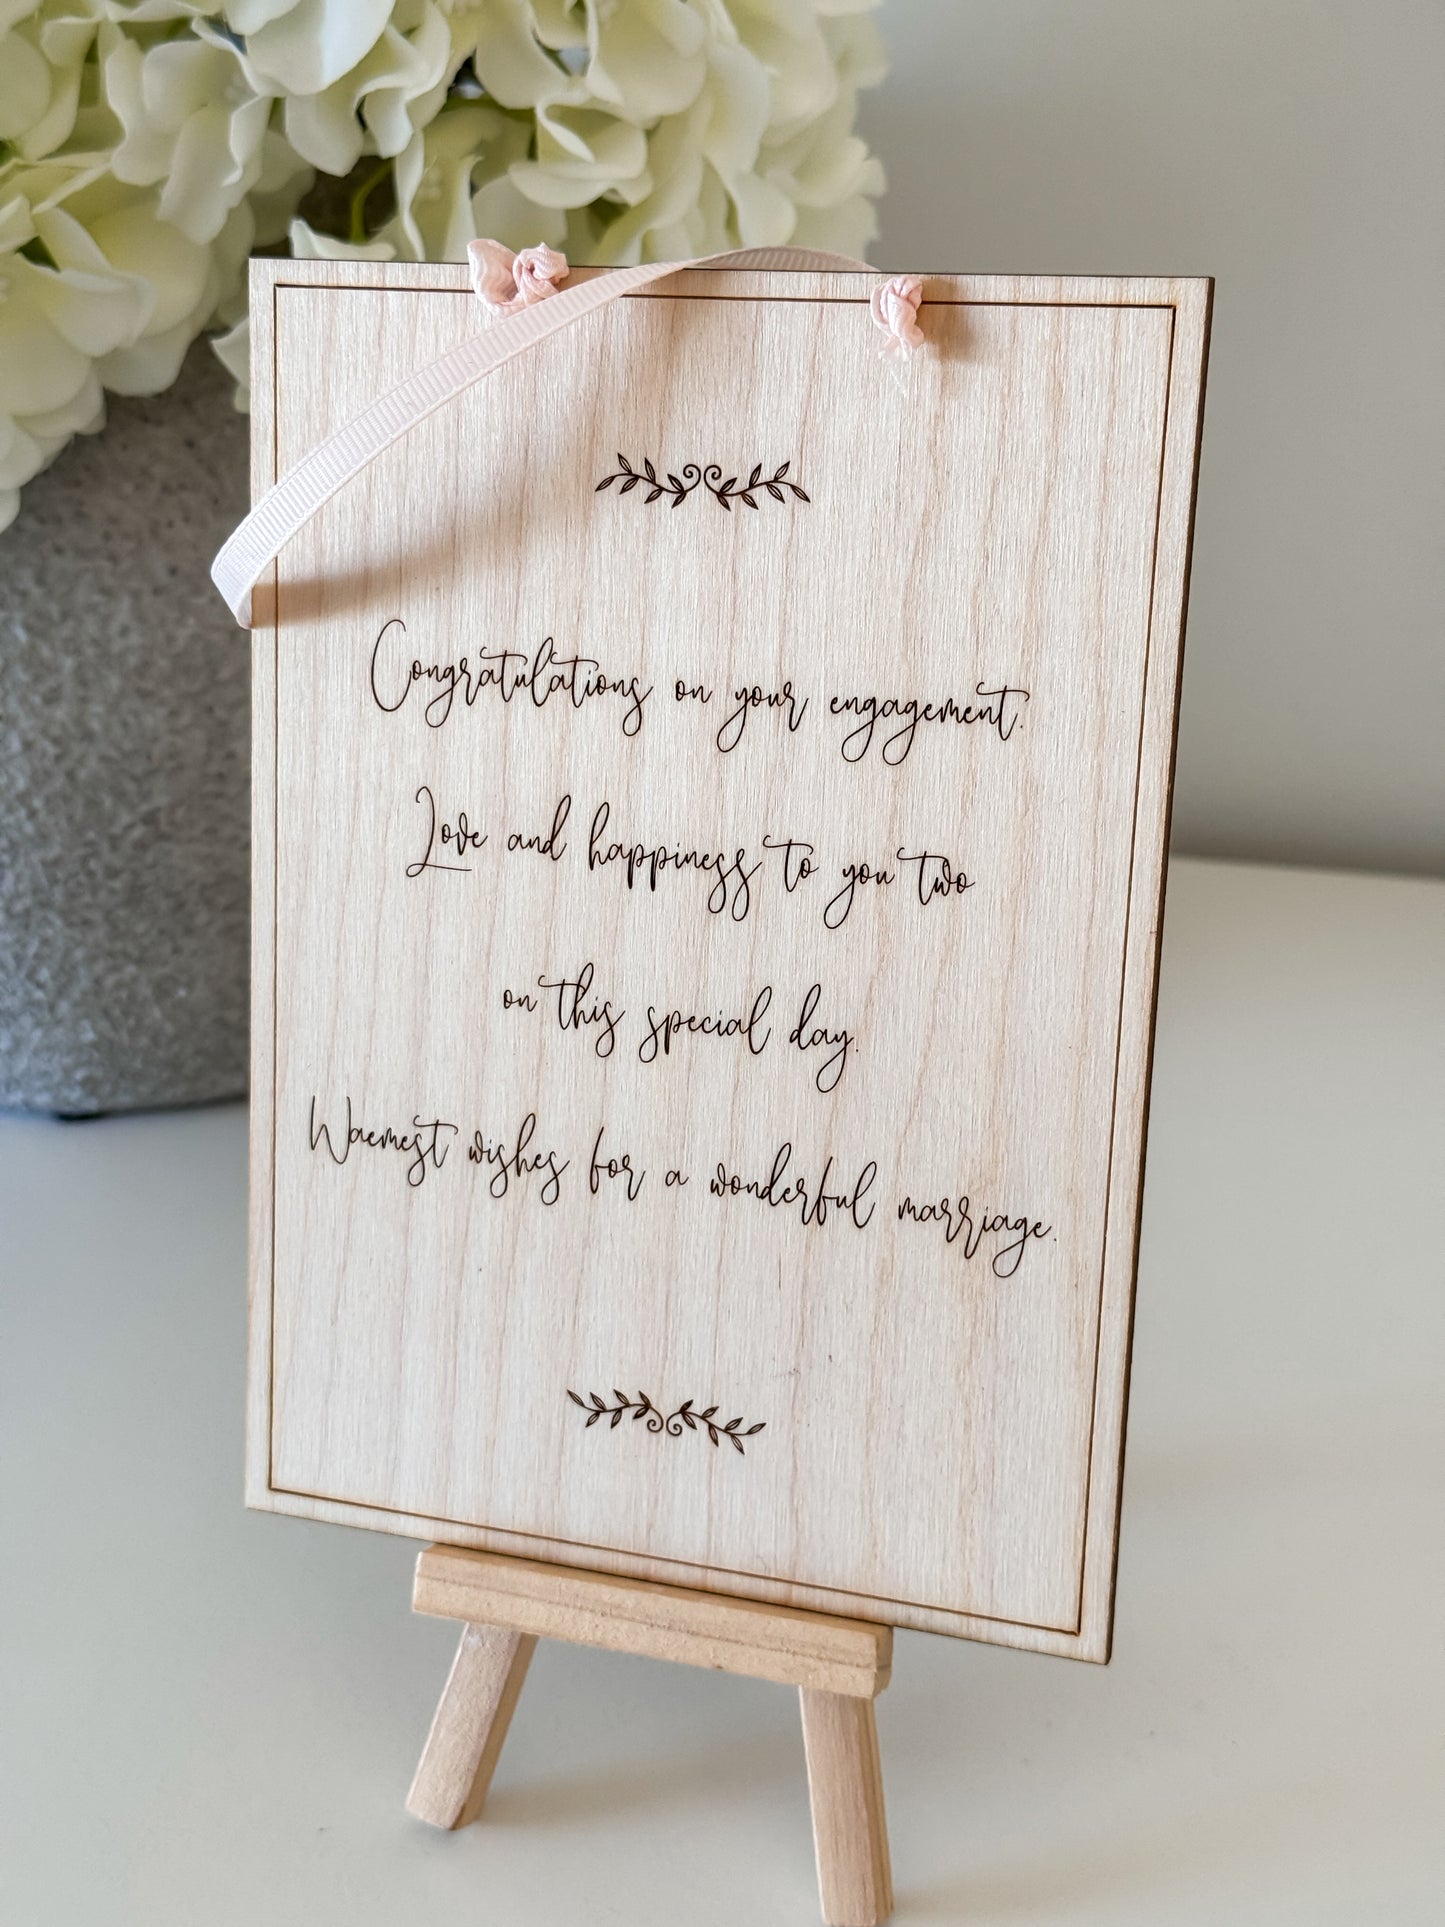 Congratulations on your engagement.
Love and happiness to you two
on this special day.
Warmest wishes for a wonderful marriage.